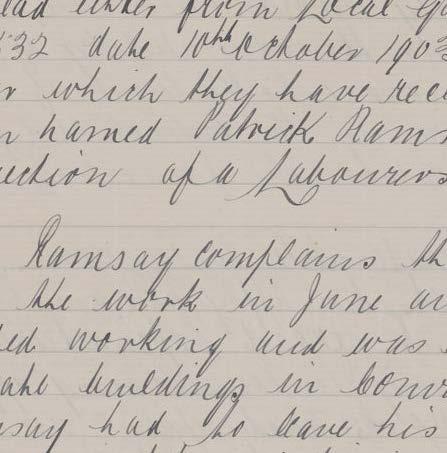 ead letter from Local Go
532 date 10th October 1903
r which they have rece
n named Patrick Rams
uction of a Labourers
Ramsay complains th
the work in June an
ed working and was
ake buildings in Conv
nsay had to leave his